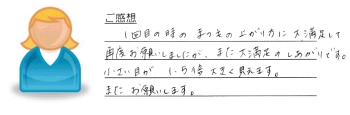 ご感想
1回目の時のまつ毛の上がり方に大満足して
再度お願いしましたが、また大満足のしあがりです。
小さい目が1.5倍大きく見えます。
またお願いします。